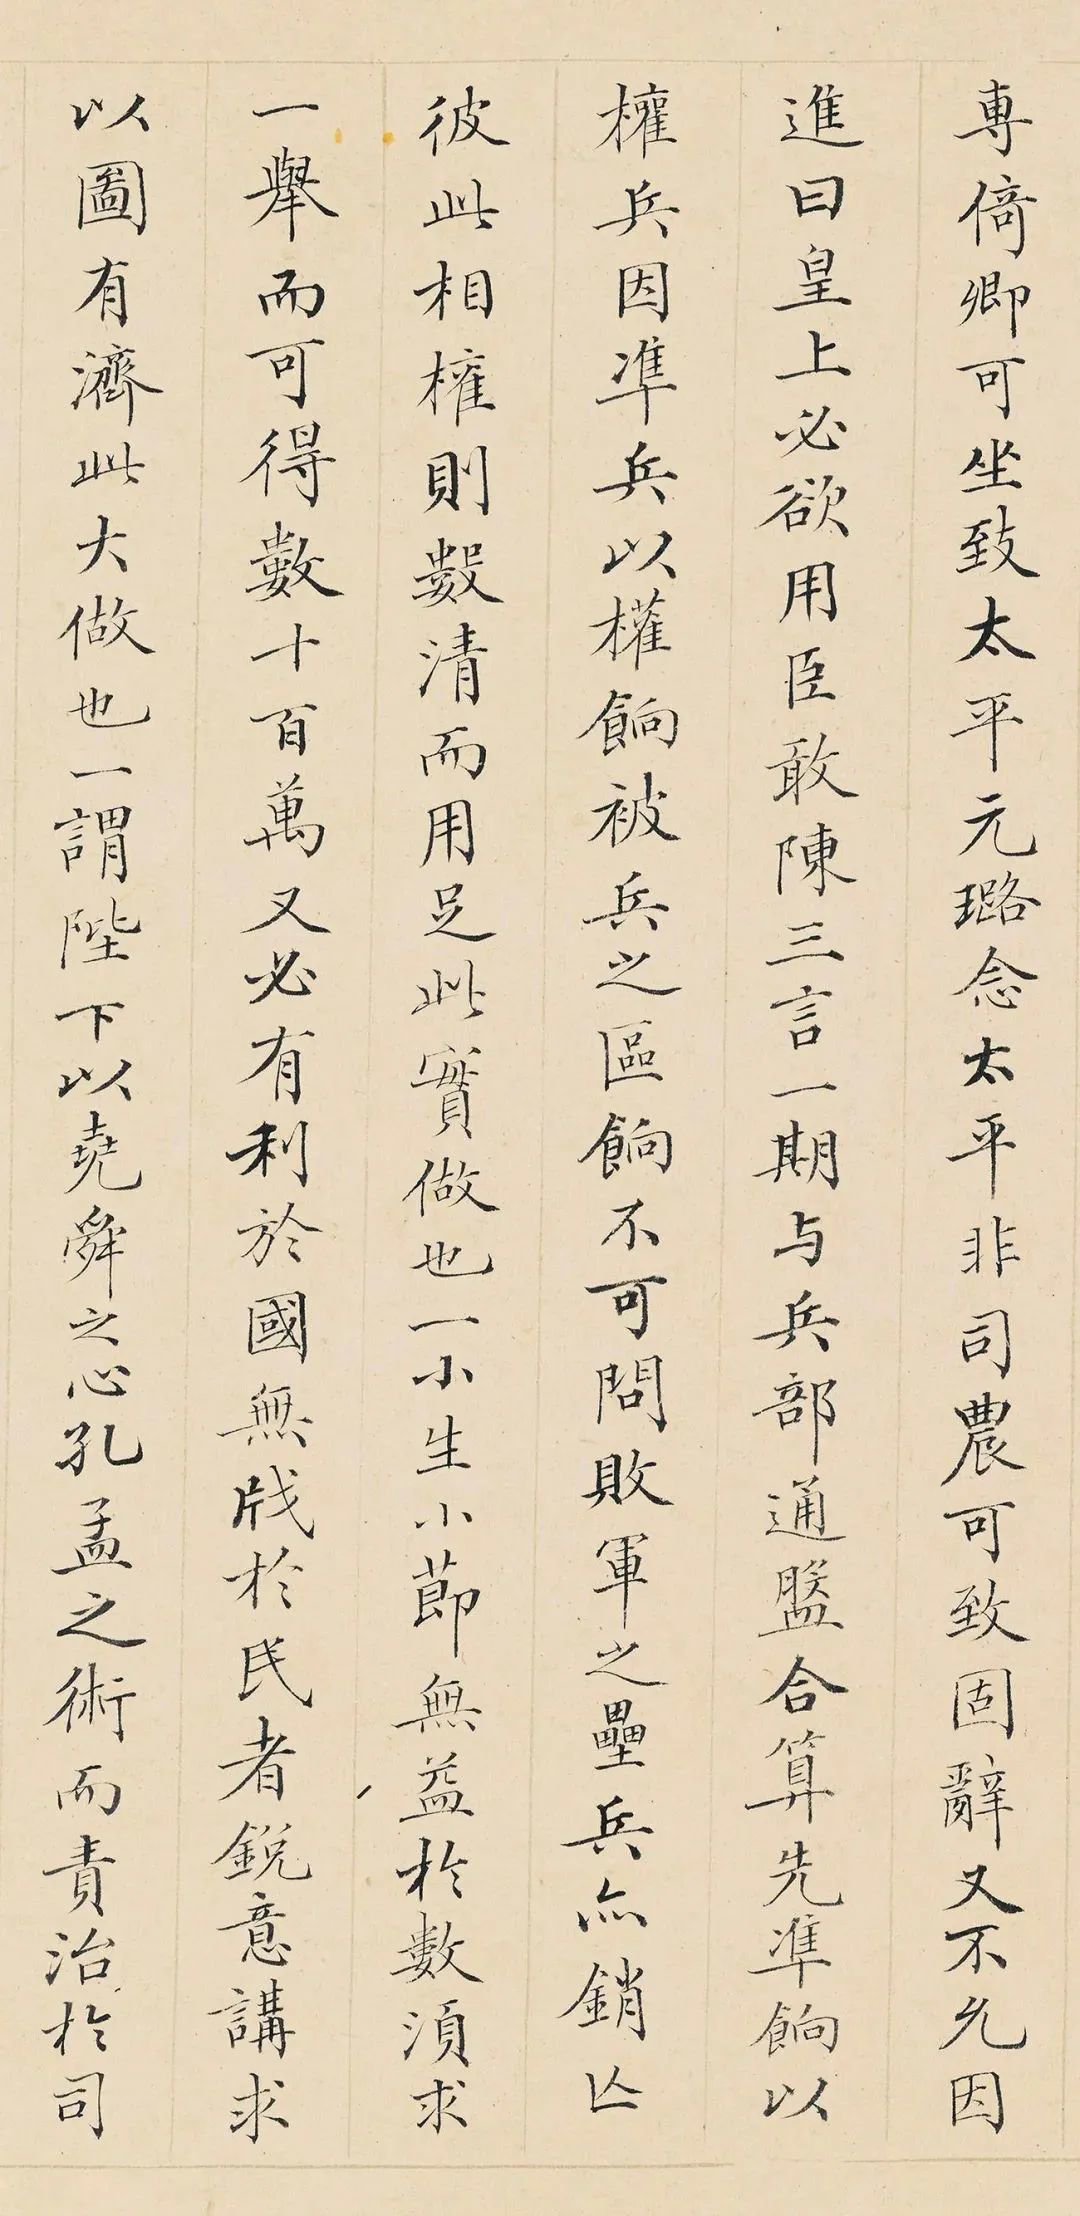 専倚卿可坐致太平元璐念太平非司農可致固辭又不允因
進曰皇上必欲用臣敢陳三言一期与兵部通盤合算先準餉以
權兵因準兵以權餉被兵之區餉不可問敗軍之壘兵亦銷亾
彼此相權則數清而用足此實做也一小生小節無益於數須求
一舉而可得數十百萬又必有利於國無戕於民者銳意講求
以圖有濟此大做也一謂陛下以堯舜之心孔孟之術而責治於司